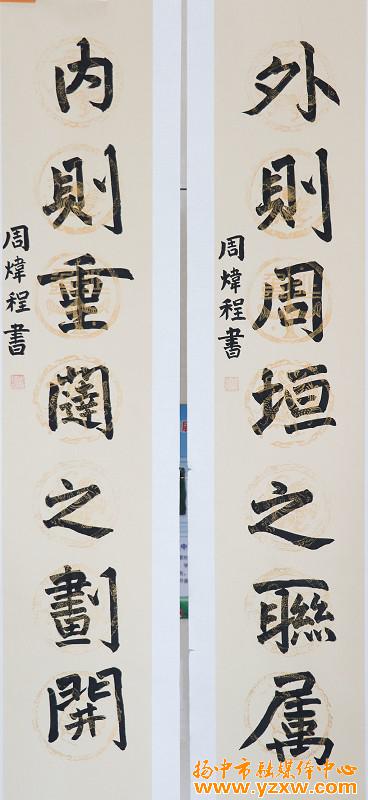 外則周垣之聯属
周煒程書
内則重闥之劃開
周煒程書
扬中市融媒体中心
www.yzxw.com